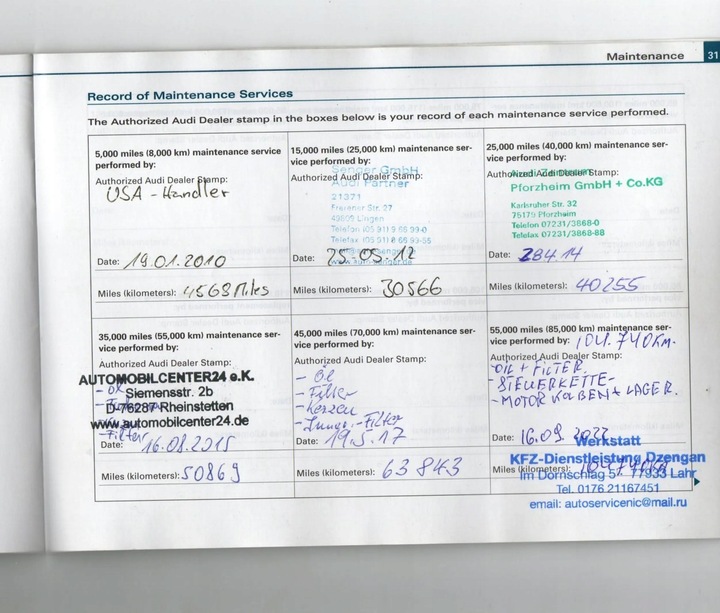 Maintenance 31
Record of Maintenance Services
The Authorized Audi Dealer stamp in the boxes below is your record of each maintenance service performed.
5,000 miles (8,000 km) maintenance service
performed by:
Authorized Audi Dealer Stamp:
USA - Händler
Date: 19.01.2010
Miles (kilometers): 4568 Miles
15,000 miles (25,000 km) maintenance ser-
vice performed by:
Senger GmbH
Authorized Audi Dealer Stamp:
Audi Partner
21371
Frerener Str. 27
Lingen
Telefon
Telefax
Date: 25-05.12
Miles (kilometers): 30566
25,000 miles (40,000 km) maintenance ser-
vice performed by:
Authorized Audi Dealer Stamp:
Pforzheim GmbH + Co.KG
Karlsruher Str. 32
75179 Pforzheim
Telefon 07231/3868-0
Telefax 07231/3868-88
Date: 284.14
Miles (kilometers): 40255
35,000 miles (55,000 km) maintenance ser-
vice performed by:
Authorized Audi Dealer Stamp:
AUTOMOBILCENTER24 e.K.
- Öl
Siemensstr. 2b
D-76287 Rheinstetten
www.automobilcenter24.de
- Filter
Date: 16.08.2015
Miles (kilometers): 50869
45,000 miles (70,000 km) maintenance ser-
vice performed by:
Authorized Audi Dealer Stamp:
- Öl
- Filter
- Kerzen
- Innenr.-Filter
Date: 19.5.17
Miles (kilometers): 63843
55,000 miles (85,000 km) maintenance ser-
vice performed by: 104.740KM.
Authorized Audi Dealer Stamp:
- OIL + FILTER.
- STEUERKETTE-
- MOTOR KOLBEN + LAGER.
Date: 16.09 2022
Werkstatt
KFZ-Dienstleistung Dzengan
Miles (kilometers): 104740KM
Im Dornschlag 57 77933 Lahr
Tel. 0176 21167451
email: autoservicenic@mail.ru